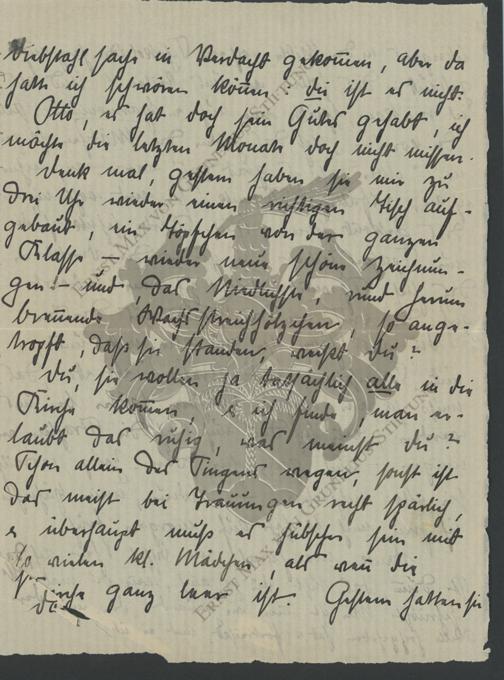 Diebstahlsache in Verdacht gekommen, aber da
hatte ich schwören können, die ist es nicht.
Otto, es hat doch sein Gutes gehabt, ich
möchte die letzten Monate doch nicht missen.
Denk mal, gestern haben sie mir zu
drei Uhr wieder einen richtigen Tisch auf-
gebaut, ein Töpfchen von der ganzen
Klasse – wieder neue schöne Zeichnun-
gen – und, das Niedlichste, rund herum
brennende Wachsstreichhölzchen, so ange-
tropft, daß sie standen, weißt Du?
Du, sie wollen ja tatsächlich alle in die
Kirche kommen & ich finde, man er-
laubt das ruhig, was meinst Du?
Schon allein des Singens wegen, sonst ist
das meist bei Trauungen recht spärlich,
& überhaupt muß es hübscher sein mit
so vielen kl. Mädchen, als wenn die
Kirche ganz leer ist. Gestern hatten sie
Ernst Max von Grunelius-Stiftung
Ernst Max von Grunelius-Stiftung